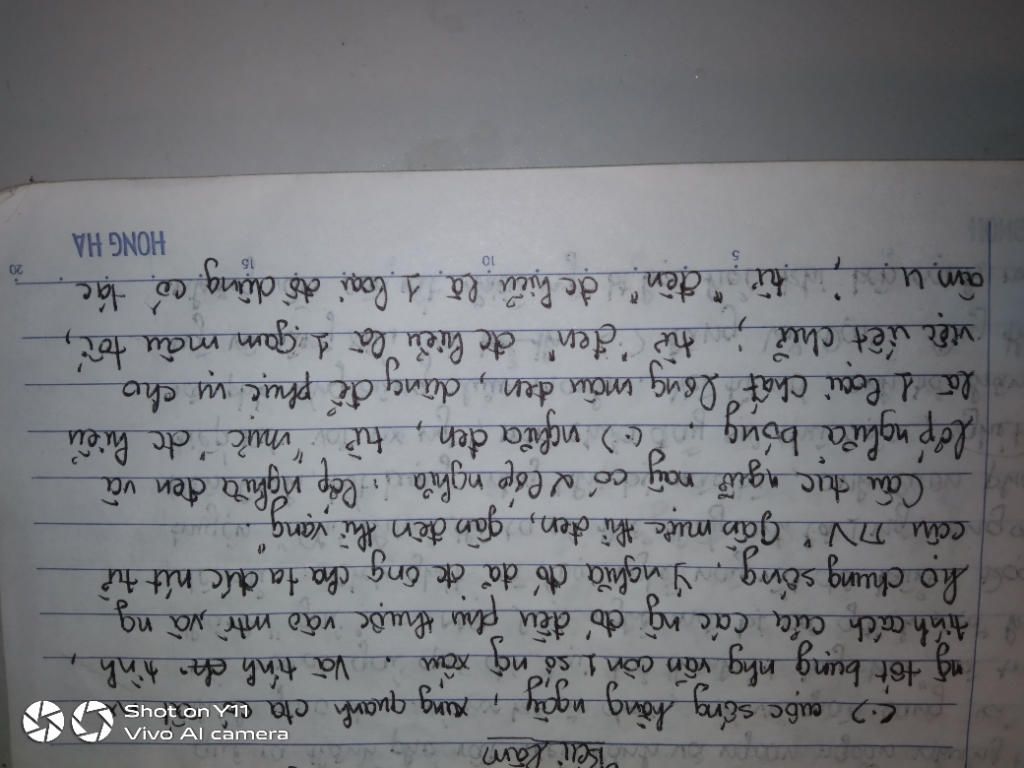 Bài làm
(.) cuộc sống hằng ngày, xung quanh cta có rất nh
ng tốt bụng nhg vẫn còn 1 số ng xấu. Và tính tình,
tính cách của các ng đó đều phụ thuộc vào mtr và ng
họ chung sống. Ý nghĩa đó đã đc ông cha ta đúc rút từ
câu TN "Gần mực thì đen, gần đèn thì rạng"
Câu tục ngữ này có 2 lớp nghĩa: lớp nghĩa đen và
lớp nghĩa bóng. (.) nghĩa đen, từ "mực" đc hiểu
là 1 loại chất lỏng màu đen, dùng để phục vụ cho
việc viết chữ, từ "đen" đc hiểu là 1 gam màu tối,
âm u, từ "đèn" đc hiểu là 1 loại đồ dùng có tác
HONG HA
5
10
15
20
Shot on Y11
Vivo AI camera